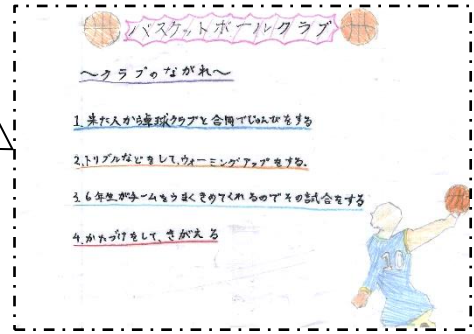 バスケットボールクラブ
～クラブのながれ～
1.来た人から卓球クラブと合同でじゅんびをする
2.ドリブルなどをして、ウォーミングアップをする。
3.6年生がチームをうまくきめてくれるのでその試合をする
4.かたづけをして、きがえる
10